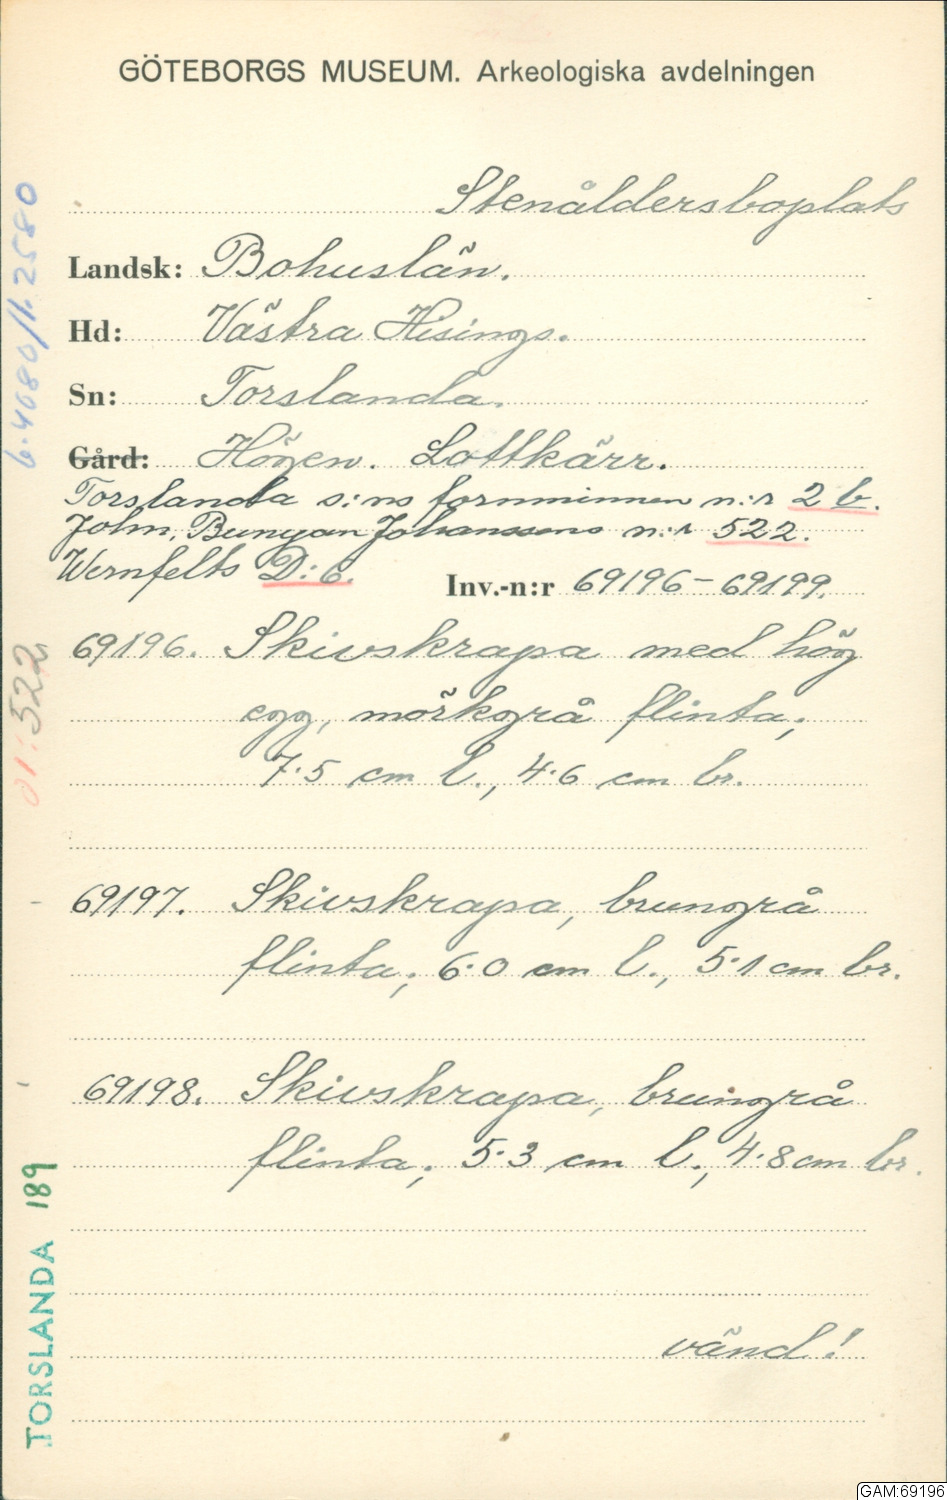 GÖTEBORGS MUSEUM. Arkeologiska avdelningen
Stenåldersboplats
Landsk: Bohuslän.
Hd: Västra Hisings.
Sn: Torslanda.
Gård: Högen. Lottkärr.
Torslanda s:ns fornminnen n:r 2 b.
John, Bunyan Johanssons n:r 522.
Wernfelts D: 6.
Inv.-n:r 69196-69199.
69196. Skivskrapa med hög
egg, mörkgrå flinta;
7.5 cm l., 4.6 cm br.
69197. Skivskrapa, brungrå
flinta; 6.0 cm l., 5.1 cm br.
69198. Skivskrapa, brungrå
flinta; 5.3 cm l., 4.8 cm br.
vänd!
01:522
TORSLANDA 189
GAM:69196